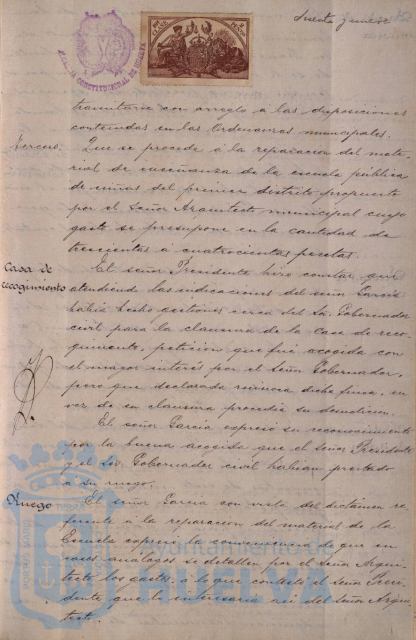 Sesenta y nueve
ALCALDIA CONSTITUCIONAL DE HUELVA
tramitarse con arreglo á las disposiciones
contenidas en las Ordenanzas municipales.
Tercero. Que se proceda á la reparacion del mate-
rial de enseñanza de la escuela pública
de niñas del primer distrito propuesto
por el Señor Arquitecto municipal cuyo
gasto se presupone en la cantidad de
trescientas á cuatrocientas pesetas.
Casa de recogimiento
El señor Presidente hizo constar que
atendiendo las indicaciones del señor García
había hecho gestiones cerca del Sr. Gobernador
civil para la clausura de la Casa de reco-
gimiento, peticion que fué acogida con
el mayor interés por el Señor Gobernador,
pero que declarada ruinosa dicha finca, en
vez de su clausura procedia su demolicion.
El señor García expresó su reconocimiento
por la buena acogida que el señor Presidente
y el Sr. Gobernador civil habian prestado
á su ruego.
Ruego El señor García con vista del dictámen re-
ferente á la reparacion del material de la
Escuela expresó la conveniencia de que en
casos análogos se detallen por el señor Arqui-
tecto los gastos, á lo que contestó el señor Presi-
dente que lo interesaria asi del señor Arqui-
tecto.
Ayuntamiento de
HUELVA